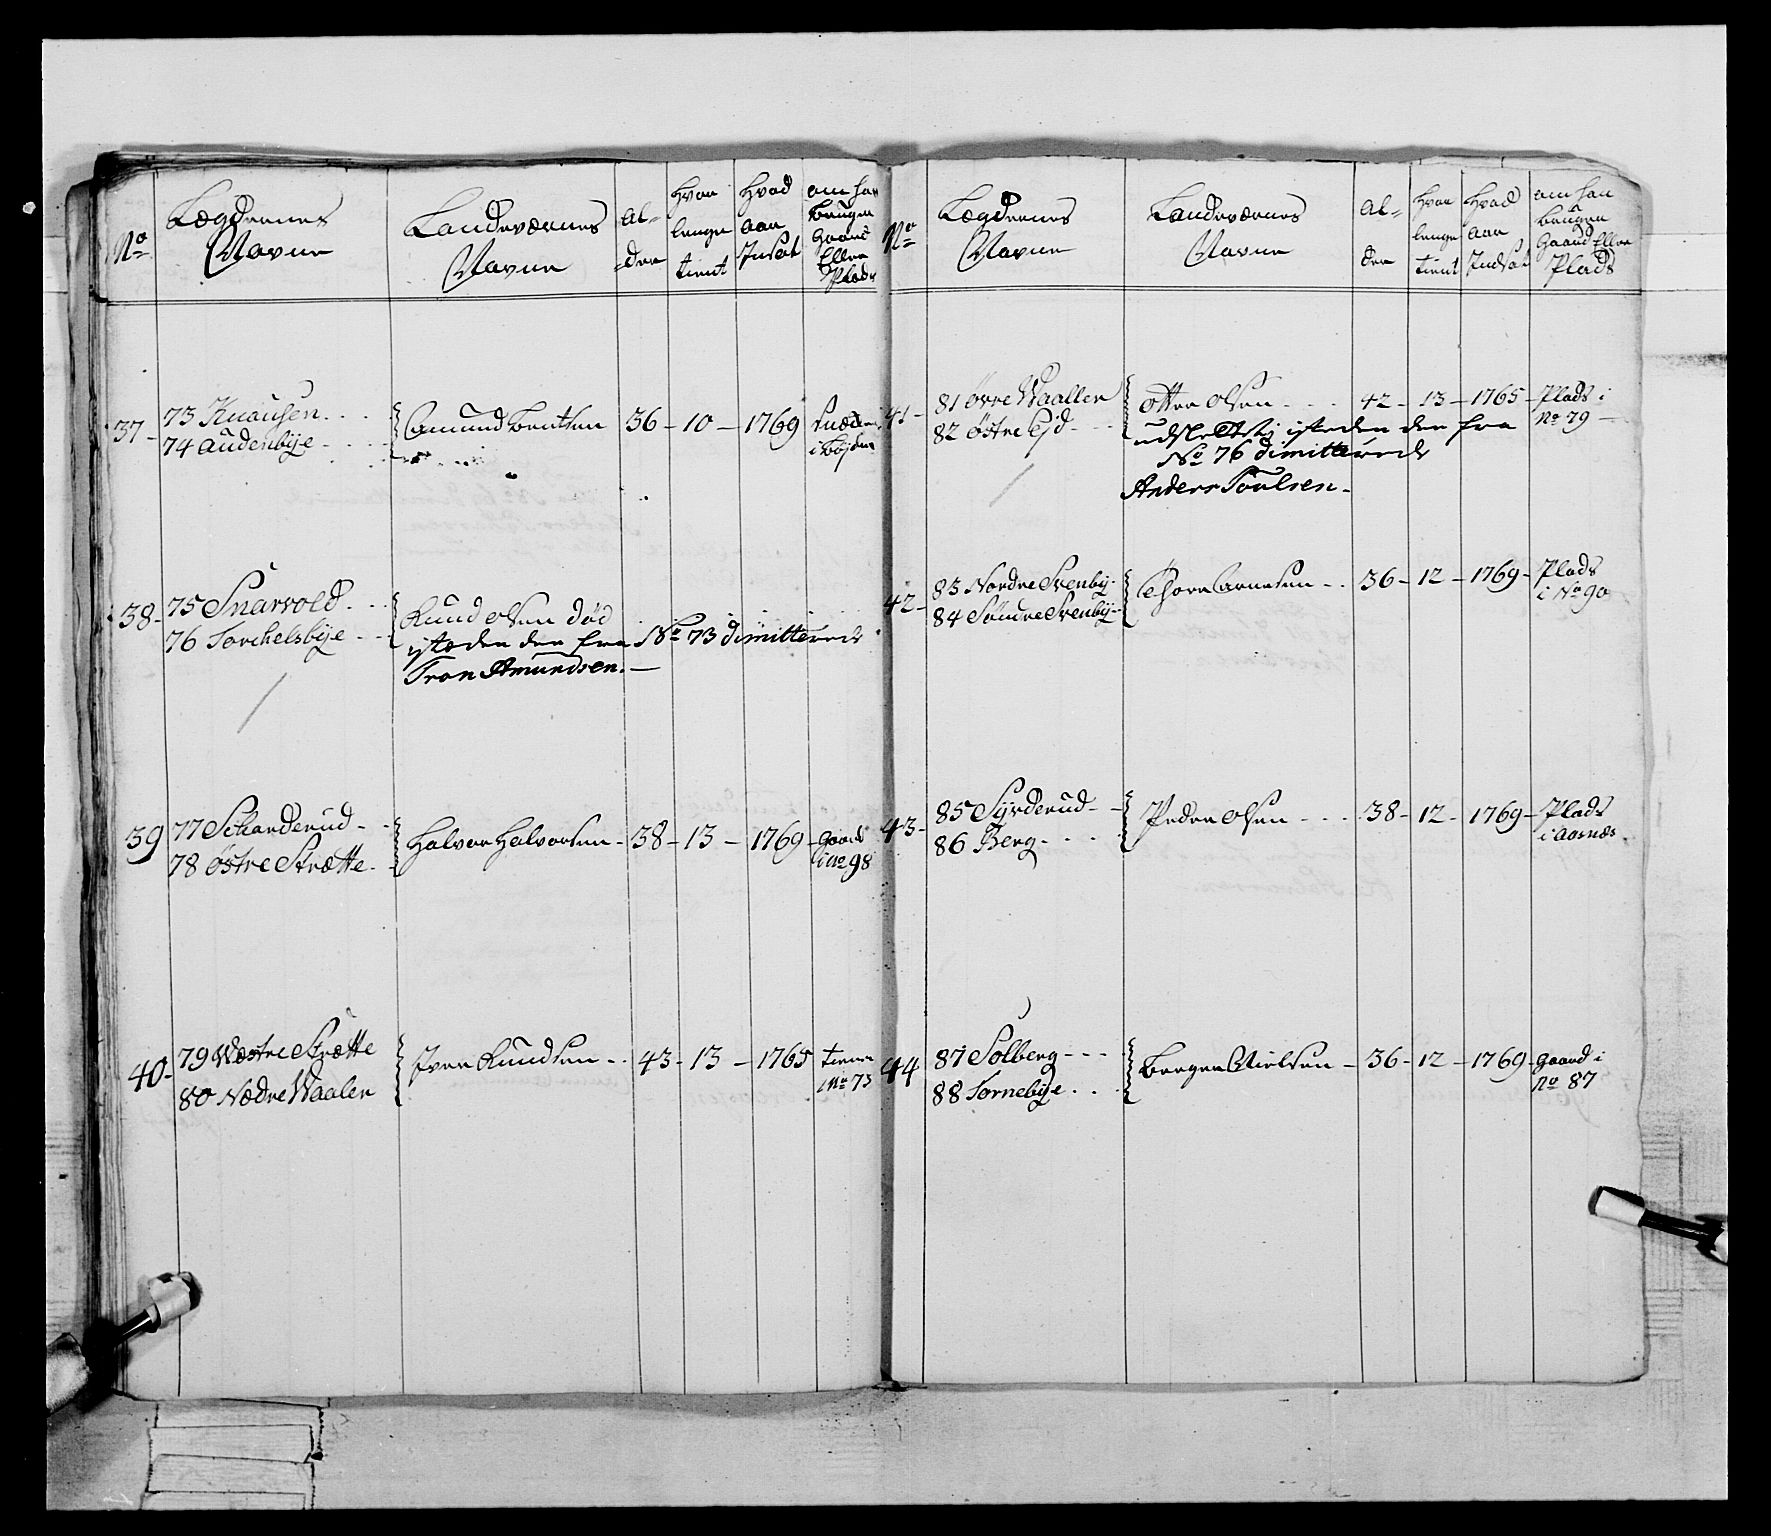 No
Lægdernes
Navne
Landeværnes
Navne
Al=
=der
Hvor
lenge
tient
Hvad
aar
Indsat
om han
bruger
Gaard
Eller
Plads
37-
73 Knausen
74 Audenbÿe
Amund Bentsen 36 - 10 - 1769
i Bÿden
38-
75 Snarvold
76 Torchelsbÿe
Knud Olsen død
isteden den fra No 73 dimitterede
Tron Amundsen.
39
77 Schanderud
78 Østre Strætte
Halvor Halvorsen 38 - 13 - 1769 - Gaard
i No 98
40-
79 Wæstre Strætte
80 Nædre Waaler
Iver Knudsen 43 - 13 - 1765
tiener
i No 73
No
Lægdernes
Navne
Landeværnes
Navne
Al=
der
Hvor
lenge
tient
Hvad
aar
Indsat
om han
bruger
Gaard Eller
Plads
41-
81 Øvre Waaller
82 Østre Ejd
Otter Olsen 42 - 13 - 1765 - Plads i
No 79
udslettes isteden den fra
No 76 dimitterede
Anders Poulsen
42-
83 Nordre Svenbÿ
84 Søndre Svenbÿ
Thore Arnesen 36 - 12 - 1769 - Plads
i No 90
43-
85 Sÿrderud
86 Berg
Peder Olsen 38 - 12 - 1769 - Plads
i Aasnæs
44
87 Solberg
88 Tornebÿe
Berger Nielsen 36 - 12 - 1769 - Gaard i
No 87